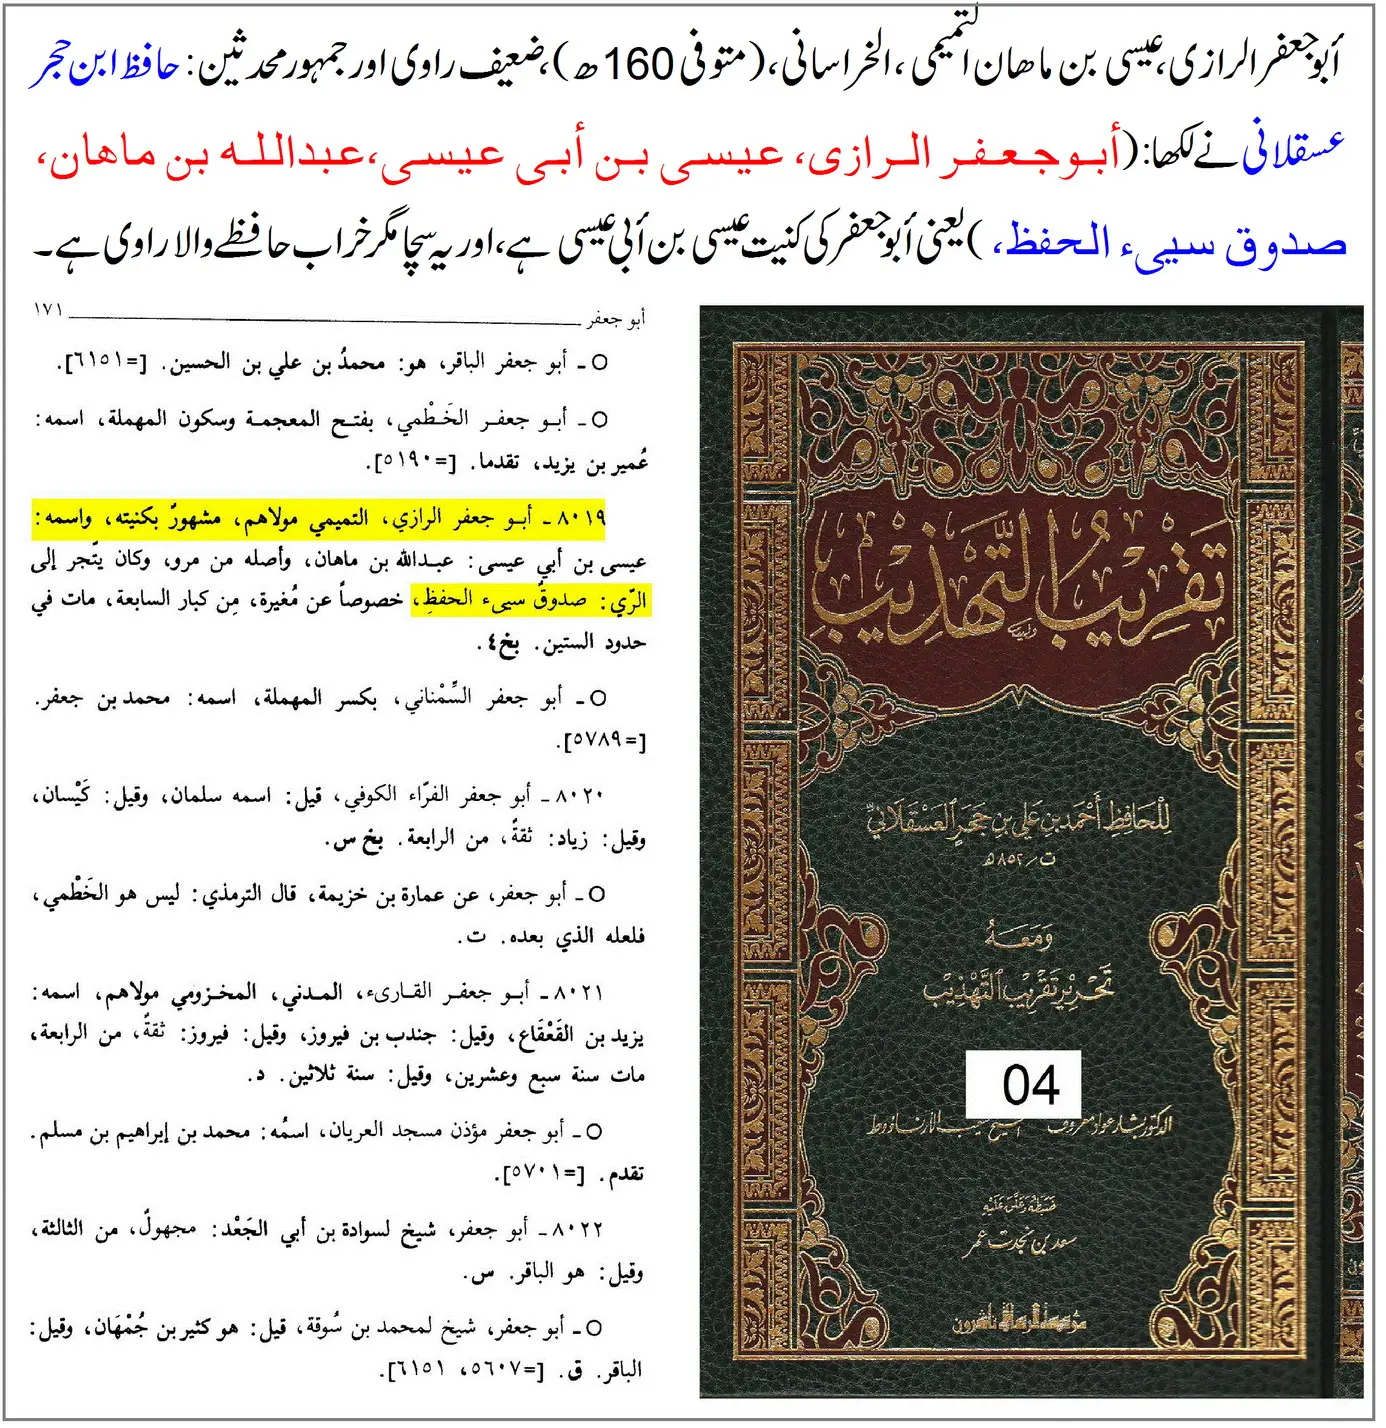 أبو جعفر الرازی، عیسی بن ماھان التمیمی، الخراسانی، (متوفی 160ھ)، ضعیف راوی اور جمہور محدثین: حافظ ابن حجر
عسقلانی نے لکھا: (أبوجعفر الرازی، عیسی بن أبی عیسی، عبدالله بن ماهان،
صدوق سییء الحفظ، ) یعنی أبو جعفر کی کنیت عیسی بن أبی عیسی ہے، اور یہ سچا مگر خراب حافظے والا راوی ہے۔
أبو جعفر ١٧١
○ ـ أبو جعفر الباقر، هو: محمدُ بن علي بن الحسين. [=٦١٥١].
○ ـ أبو جعفر الخَطْمي، بفتح المعجمة وسكون المهملة، اسمه:
عُمير بن يزيد، تقدما. [=٥١٩٠].
٨٠١٩ ـ أبو جعفر الرازي، التميمي مولاهم، مشهورٌ بكنيته، واسمه:
عيسى بن أبي عيسى: عبدالله بن ماهان، وأصله من مرو، وكان يتّجر إلى
الرّي: صدوقٌ سيىء الحفظِ، خصوصاً عن مُغيرة، مِن كبار السابعة، مات في
حدود الستين. بخ٤.
○ ـ أبو جعفر السِّمْناني، بكسر المهملة، اسمه: محمد بن جعفر.
[=٥٧٨٩].
٨٠٢٠ ـ أبو جعفر الفرّاء الكوفي، قيل: اسمه سلمان، وقيل: كَيْسان،
وقيل: زياد: ثقةٌ، من الرابعة. بخ س.
○ ـ أبو جعفر، عن عمارة بن خزيمة، قال الترمذي: ليس هو الخَطْمي،
فلعله الذي بعده. ت.
٨٠٢١ ـ أبو جعفر القارىء، المدني، المخزومي مولاهم، اسمه:
يزيد بن القَعْقَاع، وقيل: جندب بن فيروز، وقيل: فيروز: ثقةٌ، من الرابعة،
مات سنة سبع وعشرين، وقيل: سنة ثلاثين. د.
○ ـ أبو جعفر مؤذن مسجد العريان، اسمُه: محمد بن إبراهيم بن مسلم.
تقدم. [=٥٧٠١].
٨٠٢٢ ـ أبو جعفر، شيخ لسوادة بن أبي الجَعْد: مجهولٌ، من الثالثة،
وقيل: هو الباقر. س.
○ ـ أبو جعفر، شيخ لمحمد بن سُوقة، قيل: هو كثير بن جُمْهَان، وقيل:
الباقر. ق. [=٥٦٠٧، ٦١٥١].
تَقْرِيبُ التَّهْذِيبِ
لِلْحَافِظِ أَحْمَد بن عَلي بن حَجَرٍ العَسْقَلَانِيِّ
ت/٨٥٢هـ
وَمَعَهُ
تَحْرِيْر تَقْرِيْب التَّهْذِيْب
04
الدكتور بشار عواد معروف
ضَبَطَهُ وَعَلَّقَ عَلَيْهِ
سعد بن نجدت عمر
مؤسسة الرسالة ناشرون